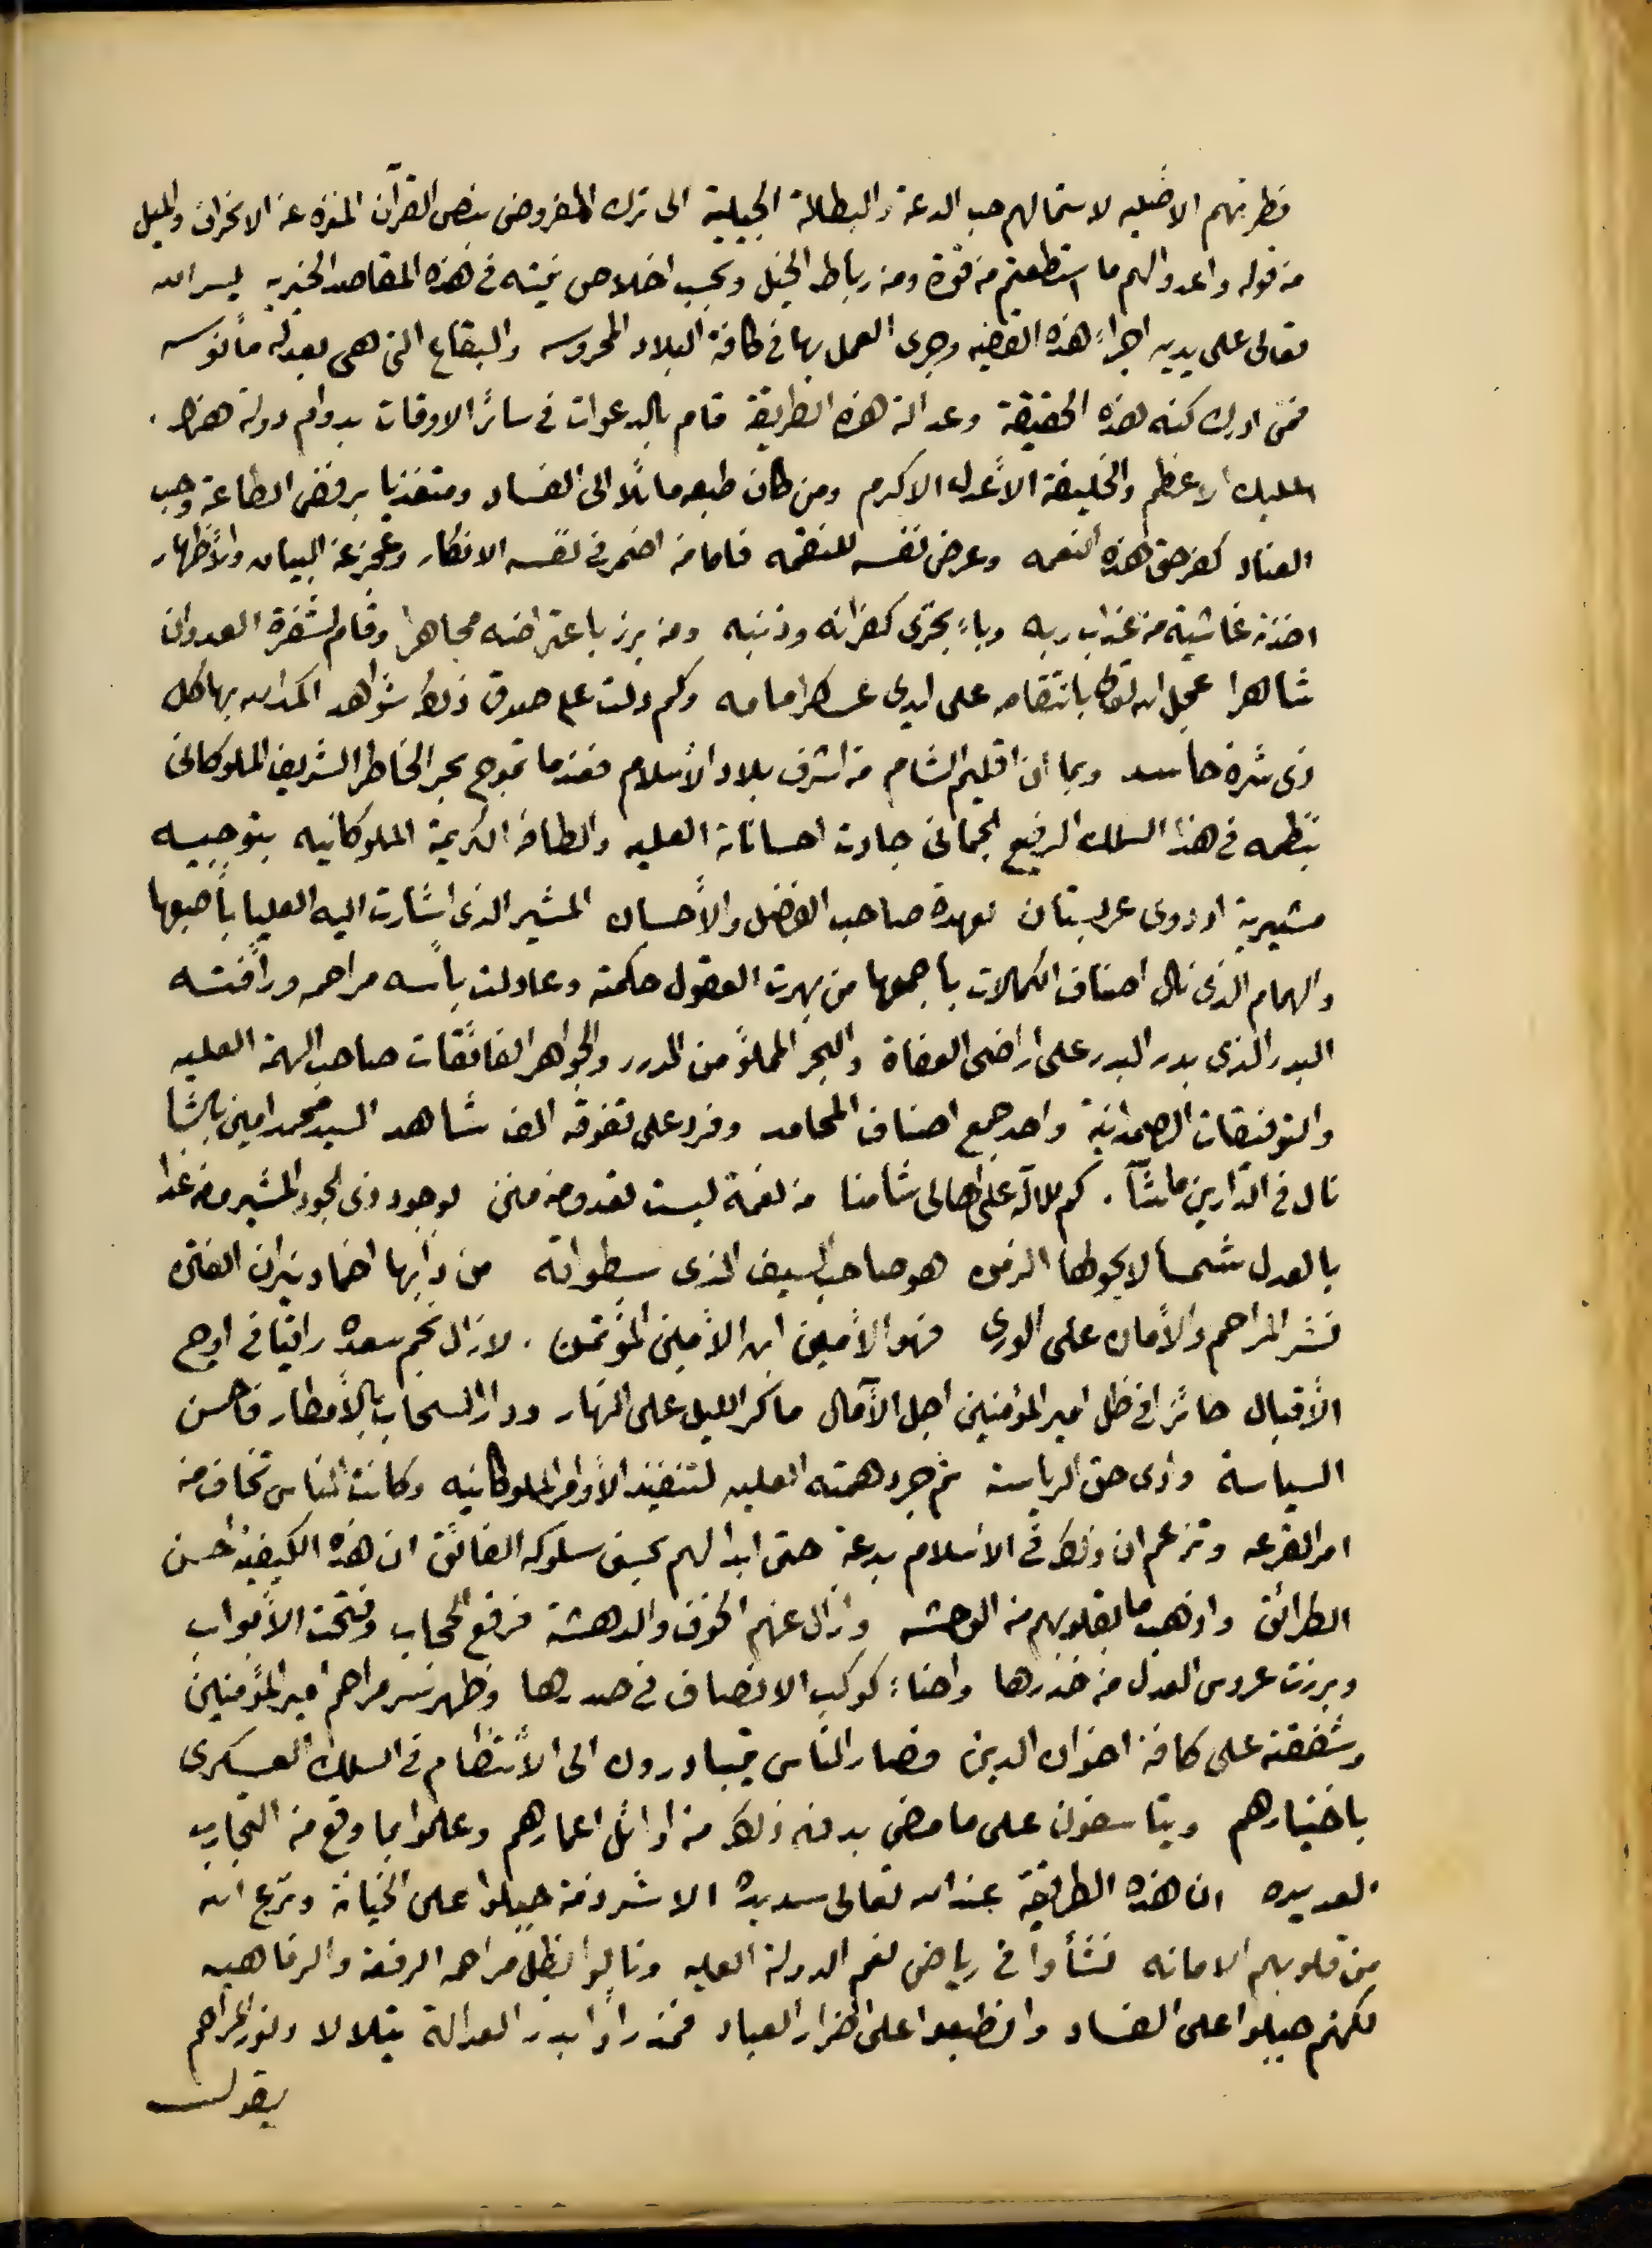 فطرتهم الاصليه لاستمالهم حب الدعة والبطالة الجبلية الى ترك المفروض بنص القرآن المنزه عن الانحراف والميل
من قوله واعدوا لهم ما استطعتم من قوة ومن رباط الخيل وبحسب اخلاص نيته في هذه المقاصد الخيريه يسر الله
تعالى على يديه اجراء هذه القضيه وجرى العمل بها في كافة البلاد المحروسه والبقاع التى هى بعدله مأنوسه
فمن ادرك كنه هذه الحقيقة وعدالة هذه الطريقة قام بالدعوات في سائر الاوقات بدوام دولة هذا
المليك الاعظم والخليفة الأعدل الاكرم ومن كان طبعه مائلًا الى الفساد ومتغذيا برفض الطاعة وحب
العناد كفر حق هذه النعمه وعرض نفسه للنقمه فاما من اضمر في نفسه الانكار وعجز عن البيان والأظهار
اخذته غاشية من عذاب ربه وباء بخزى كفرانه وذنبه ومن برز باعتراضه مجاهرا وقام لشفرة العدوان
شاهرا عجل الله تعالى بانتقامه على ايدى عسكر امامه وكم دلت على صدق ذلك شواهد اكمد الله بها كل
ذى شره حاسد وبما أن اقليم الشام من اشرف بلاد الأسلام فعندما تموج بحر الخاطر الشريف الملوكانى
بنظمه في هذا السلك الرفيع الجمانى جادت احساناته العليه والطافه الكريمة الملوكانيه بتوجيه
مشيرية اوردوى عربستان لعهدة صاحب الفضل والأحسان المشير الذى اشارت اليه العليا بأصبعها
والهمام الذى نال اصناف الكمالات باجمعها من بهرت العقول حكمته وعادلت بأسه مراحمه ورأفته
البدر الذى بدر البدر على اراضى العفاة والبحر المملؤ من الدرر والجواهر الفائقات صاحب الهمة العليه
والتوفيقات الصمدانية واحد جمع اصناف المحامد وفرد على تفوقه الف شاهد السيد محمد امين باشا
نال في الدارين ماشآ . كم لله على اهالى شامنا من نعمة ليست تعد ومن منن لوجود ذى الجود المشير ومن غدا
بالعدل شمسا لا يحوطها الزمن هو صاحب السيف الذى سطواته من دأبها اخماد نيران الفتن
نشر المراحم والأمان على الورى فهو الأمين ابن الأمين المؤتمن . لازال نجم سعده راقيًا في اوج
الأقبال حائزا في ظل امير المؤمنين اجل الآمال ما كر الليل على النهار ودار السحاب بالأمطار فاحسن
السياسة وادى حق الرياسة ثم جرد همته العليه لتنفيذ الأوامر الملوكانيه وكانت الناس تخاف من
امر القرعه وتزعم ان ذلك في الاسلام بدعة حتى ابدا لهم بحسن سلوكه الفائق ان هذه الكيفية احسن
الطرائق واذهب ما بقلوبهم من الوحشه وازال عنهم الخوف والدهشة فرفع الحجاب وفتحت الأبواب
وبرزت عروس العدل من خدرها واضاء كوكب الانصاف في صدرها وظهر سر مراحم امير المؤمنين
وشفقته على كافة اخوان الدين فصار الناس يتبادرون الى الأنتظام في السلك العسكرى
باختيارهم ويتأسفون على ما مضى بدون ذلك من اوائل اعمارهم وعلموا بما وقع من التجارب
العديده ان هذه الطريقة عند الله تعالى سديده الا شرذمة جبلوا على الخيانة ونزع الله
من قلوبهم الامانه نشأوا في رياض نعم الدولة العليه ونالوا بظل مراحمه الرفعة والرفاهيه
لكنهم جبلوا على الفساد وانطبعوا على اضرار العباد فمذ رأوا بدر العدالة يتلالا ونور المراحم
يقول